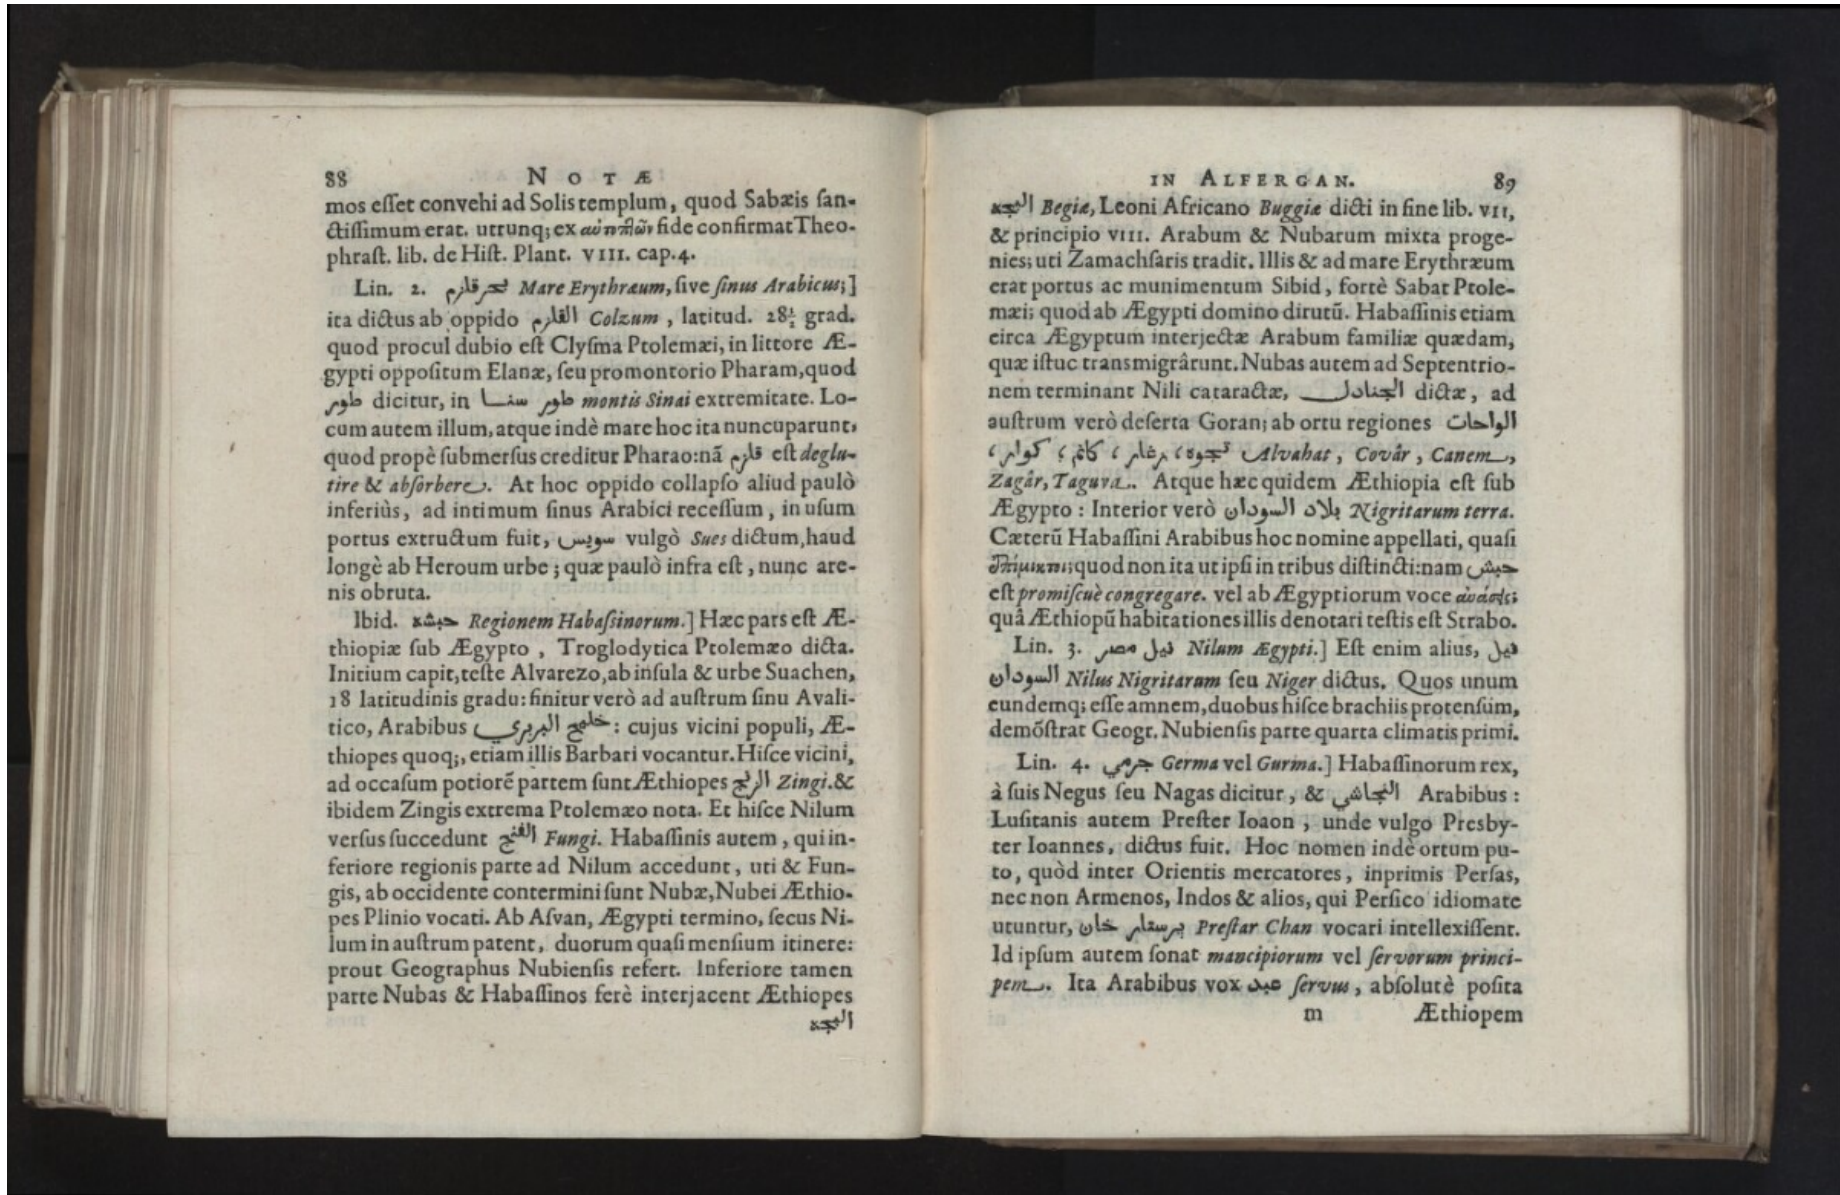 88 NOTÆ
mos eſſet convehi ad Solis templum, quod Sabæis ſan-
ctiſſimum erat. utrunq; ex fide confirmat Theo-
phraſt. lib. de Hiſt. Plant. VIII. cap. 4.
Lin. 2. بحر قلزم Mare Erythræum, ſive ſinus Arabicus;]
ita dictus ab oppido القلزم Colzum, latitud. 28½ grad.
quod procul dubio eſt Clyſma Ptolemæi, in littore Æ-
gypti oppoſitum Elanæ, ſeu promontorio Pharam, quod
طور dicitur, in طور سنا montis Sinai extremitate. Lo-
cum autem illum, atque indè mare hoc ita nuncuparunt,
quod propè ſubmerſus creditur Pharao: nã قلزم eſt deglu-
tire & abſorbere. At hoc oppido collapſo aliud paulò
inferiùs, ad intimum ſinus Arabici receſſum, in uſum
portus extructum fuit, سويس vulgò Sues dictum, haud
longè ab Heroum urbe; quæ paulò infra eſt, nunc are-
nis obruta.
Ibid. حبشه Regionem Habaſſinorum.] Hæc pars eſt Æ-
thiopiæ ſub Ægypto, Troglodytica Ptolemæo dicta.
Initium capit, teſte Alvarezo, ab inſula & urbe Suachen,
18 latitudinis gradu: finitur verò ad auſtrum ſinu Avali-
tico, Arabibus خليج البربري: cujus vicini populi, Æ-
thiopes quoq;, etiam illis Barbari vocantur. Hiſce vicini,
ad occaſum potiorẽ partem ſunt Æthiopes الزنج Zingi. &
ibidem Zingis extrema Ptolemæo nota. Et hiſce Nilum
verſus ſuccedunt الفنج Fungi. Habaſſinis autem, qui in-
feriore regionis parte ad Nilum accedunt, uti & Fun-
gis, ab occidente contermini ſunt Nubæ, Nubei Æthio-
pes Plinio vocati. Ab Aſvan, Ægypti termino, ſecus Ni-
lum in auſtrum patent, duorum quaſi menſium itinere:
prout Geographus Nubienſis refert. Inferiore tamen
parte Nubas & Habaſſinos ferè interjacent Æthiopes
البجه
IN ALFERGAN. 89
البجه Begiæ, Leoni Africano Buggiæ dicti in fine lib. VII,
& principio VIII. Arabum & Nubarum mixta proge-
nies; uti Zamachſaris tradit. Illis & ad mare Erythræum
erat portus ac munimentum Sibid, fortè Sabat Ptole-
mæi; quod ab Ægypti domino dirutũ. Habaſſinis etiam
circa Ægyptum interjectæ Arabum familiæ quædam,
quæ iſtuc transmigrârunt. Nubas autem ad Septentrio-
nem terminant Nili cataractæ, الجنادل dictæ, ad
auſtrum verò deſerta Goran; ab ortu regiones الواحات
كوار، كانم، زغار، تجوه، Alvahat, Covâr, Canem,
Zagâr, Taguva. Atque hæc quidem Æthiopia eſt ſub
Ægypto: Interior verò بلاد السودان Nigritarum terra.
Cæterũ Habaſſini Arabibus hoc nomine appellati, quaſi
ἐπίμικτοι; quod non ita ut ipſi in tribus diſtincti: nam حبش
eſt promiſcuè congregare. vel ab Ægyptiorum voce αὐάσεις;
quâ Æthiopũ habitationes illis denotari teſtis eſt Strabo.
Lin. 3. نيل مصر Nilum Ægypti.] Eſt enim alius, نيل
السودان Nilus Nigritarum ſeu Niger dictus. Quos unum
eundemq; eſſe amnem, duobus hiſce brachiis protenſum,
demõſtrat Geogr. Nubienſis parte quarta climatis primi.
Lin. 4. جرمي Germa vel Gurma.] Habaſſinorum rex,
à ſuis Negus ſeu Nagas dicitur, & النجاشي Arabibus:
Luſitanis autem Preſter Ioaon, unde vulgo Presby-
ter Ioannes, dictus fuit. Hoc nomen indè ortum pu-
to, quòd inter Orientis mercatores, inprimis Perſas,
nec non Armenos, Indos & alios, qui Perſico idiomate
utuntur, پرستار خان Preſtar Chan vocari intellexiſſent.
Id ipſum autem ſonat mancipiorum vel ſervorum princi-
pem. Ita Arabibus vox عبد ſervus, abſolutè poſita
m Æthiopem